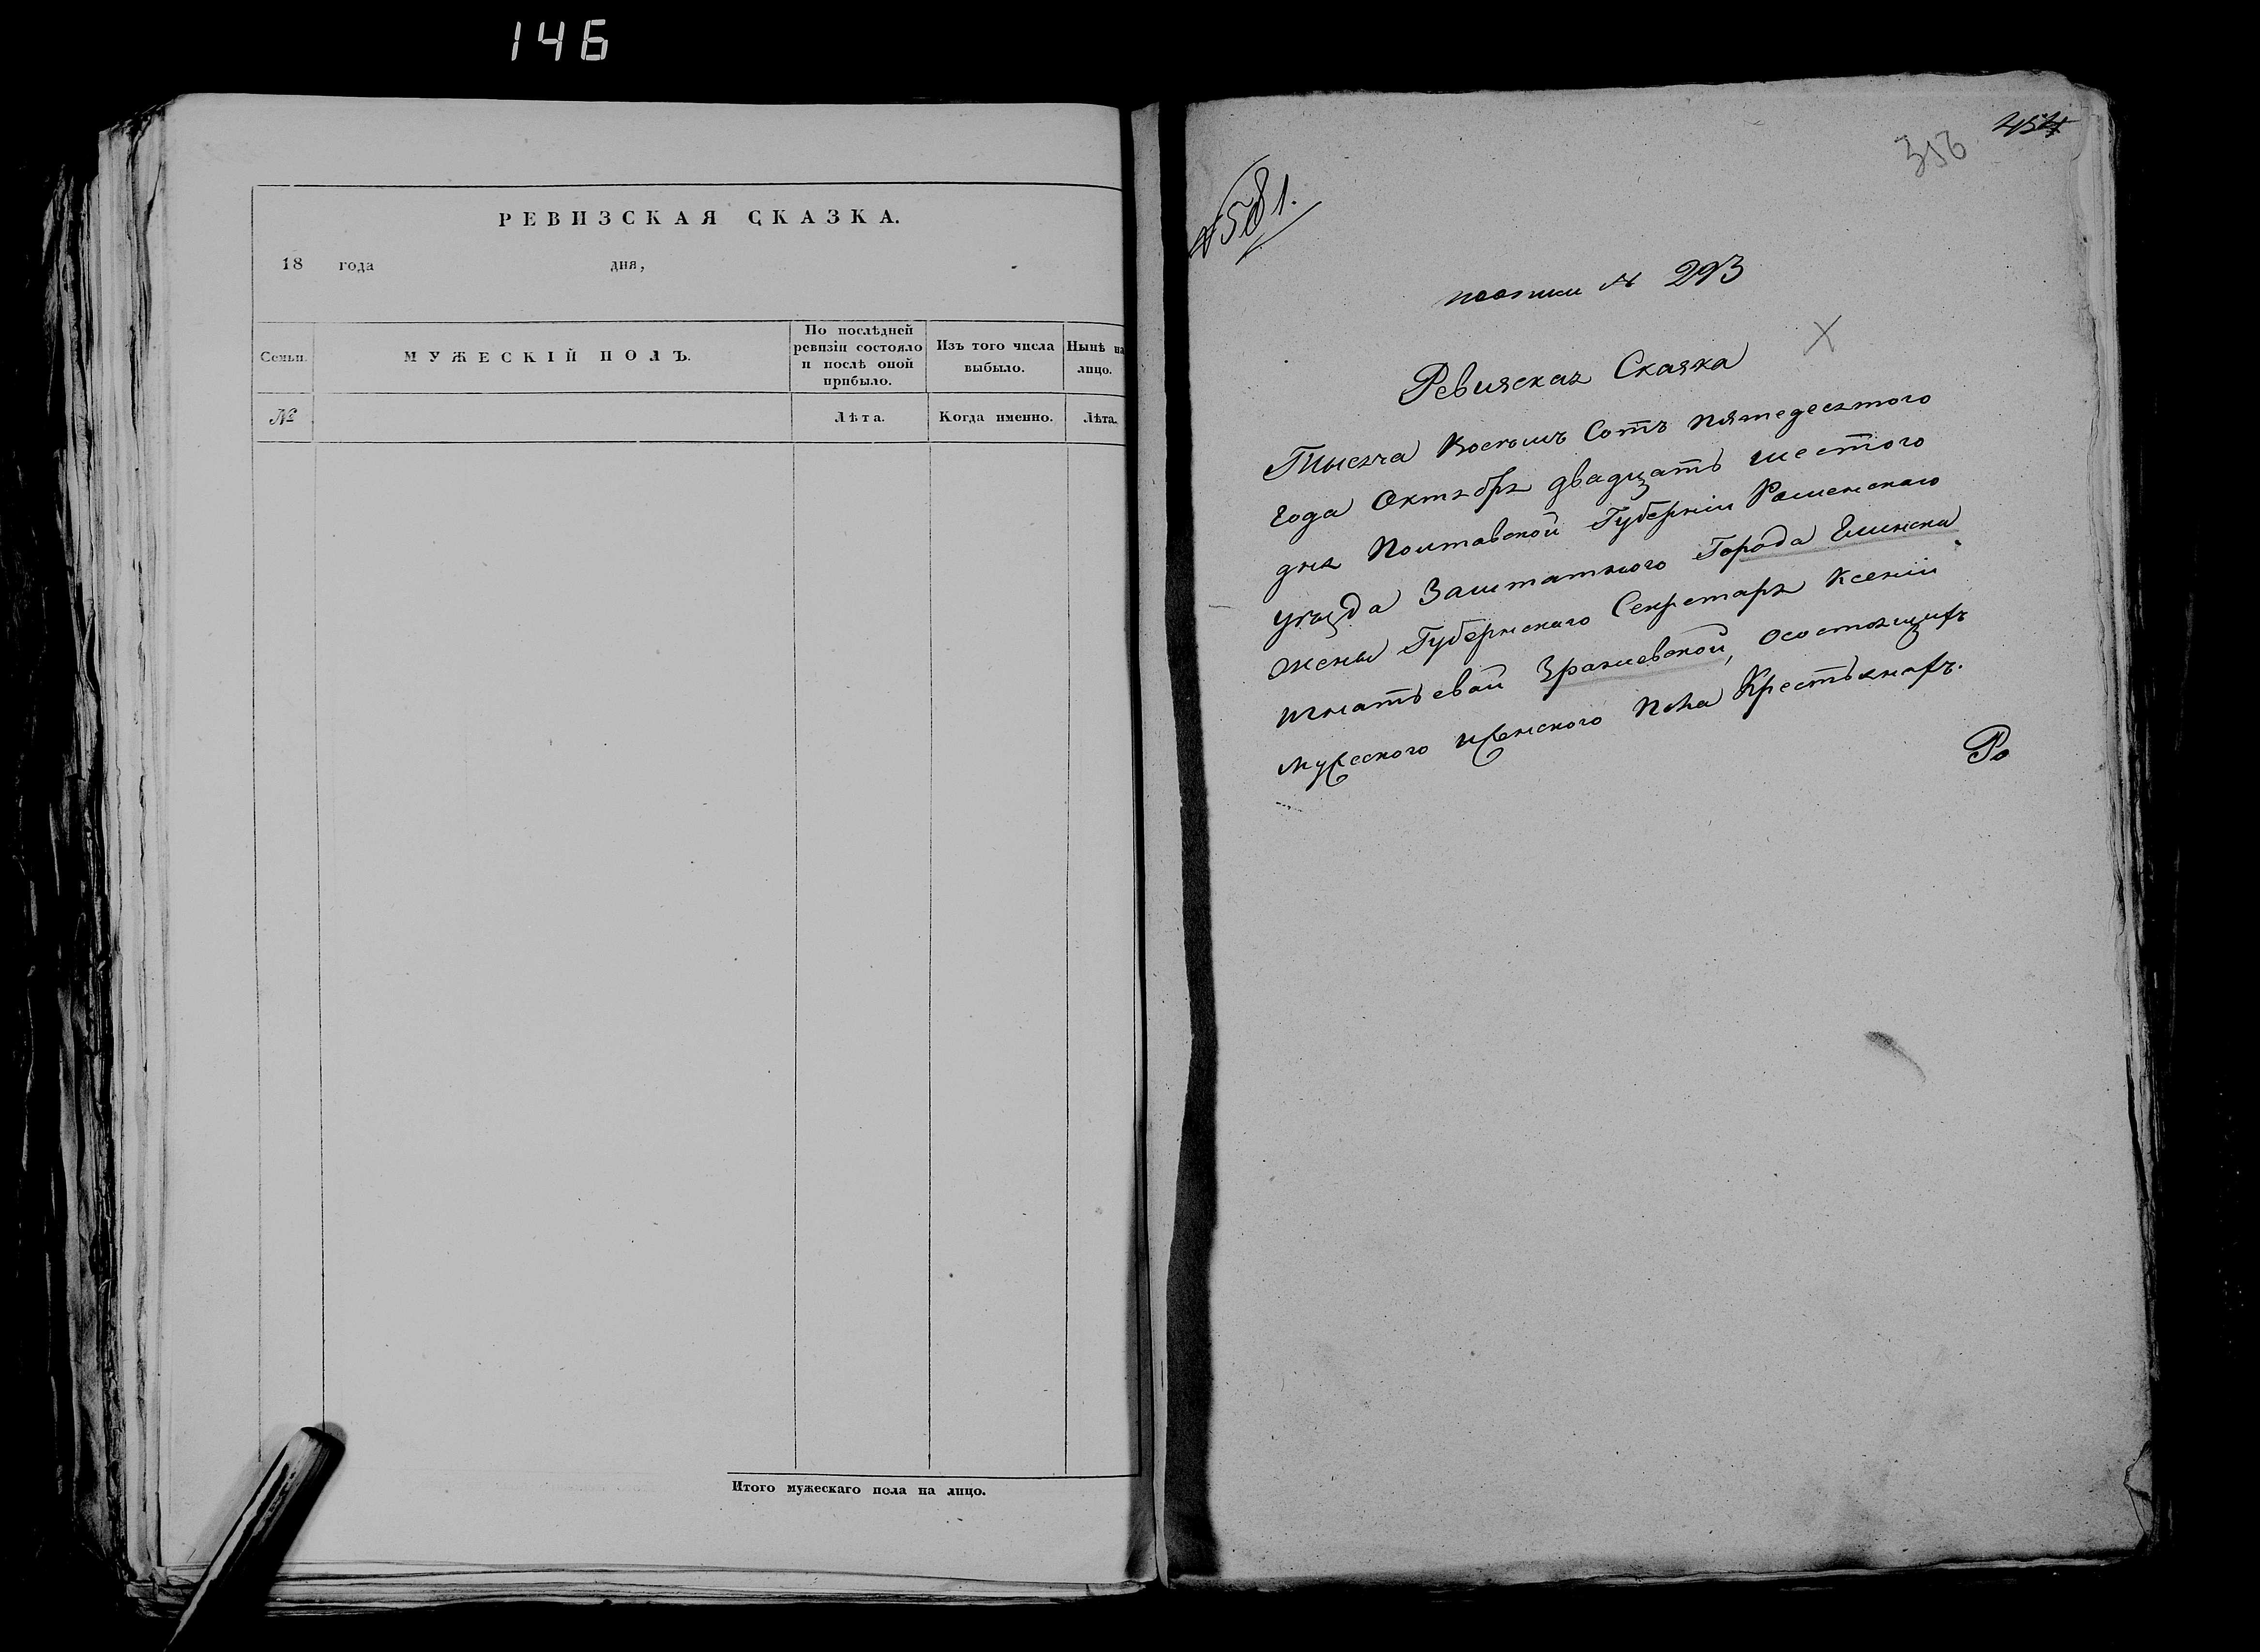 146
РЕВИЗСКАЯ СКАЗКА.
18 года дня,
Семьи.
МУЖЕСКІЙ ПОЛЪ.
По послѣдней
ревизіи состояло
и послѣ оной
прибыло.
Изъ того числа
выбыло.
Нынѣ на
лицо.
№
Лѣта.
Когда именно.
Лѣта.
Итого мужескаго пола на лицо.
454
356
№ 581.
№ 293
Ревизская Сказка
Тысяча Восемь Сотъ пятедесятого
года Октября двадцать шестого
дня Полтавской Губерніи Роменскаго
уѣзда Заштатного Города Глинска
жены Губернскаго Секретаря Ксеніи
игнатьевой Зражевской, осостоящихъ
мужеского иженского пола Крестьянахъ.
Ро